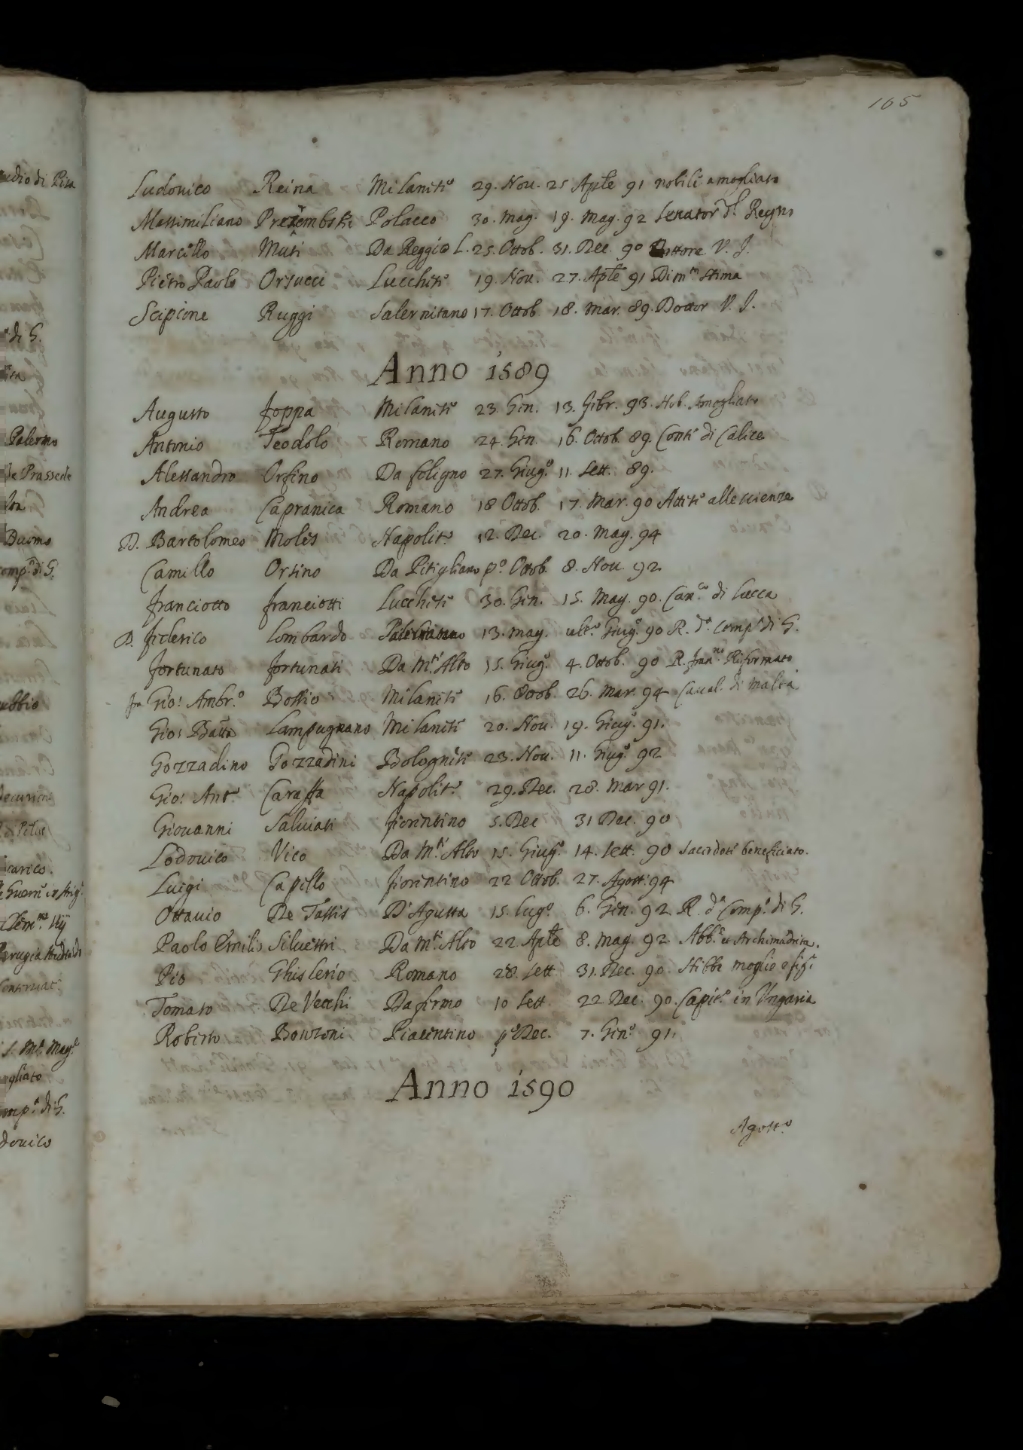 105
Ludovico Reina Milanese 29. Nov. 25 Aple 91 nobile amogliato
Massimiliano Prezembski Polacco 30. Mag. 19. Mag. 92 Senator d'l Regno
Marcello Muti Da Reggio L. 25. Ottob. 31. Dec. 90 Dottore V. J.
Pietro Paolo Orsucci Lucchese 19. Nov. 27. Aple 91 Di m.ta stima
Scipione Ruggi Salernitano 17. Ottob 18. Mar. 89. Dottor V. J.
Anno 1589
Augusto Foppa Milanese 23. Gen. 13. Gibr. 93. Nob. Amogliato
Antonio Teodolo Romano 24. Gen. 16. Ottob. 89. Conte di Calice
Alessandro Orsino Da Foligno 27. Giug.o 11. Sett. 89.
Andrea Capranica Romano 18 Ottob. 17. Mar. 90 Attese alle scienze
D. Bartolomeo Moles Napolit.o 12. Dec. 20. Mag. 94
Camillo Orsino Da Pitigliano p.o Ottob. 8. Nov. 92
Franciotto Franciotti Lucchese 30. Gen. 15. Mag. 90. Can.co di Lucca
D. Federico Lombardo Palermitano 13. Mag. ult.o Giug.o 90 R. d.a Comp.a di G.
Fortunato Fortunati Da M.te Alto 15. Giug.o 4. Ottob. 90 R. Fran.no Riformato
fr Gio: Ambr.o Bossio Milanese 16. Ottob. 26. Mar. 94 Caval. di Malta
Gio: Batta Lampugnano Milanese 20. Nov. 19. Giug.o 91.
Gozzadino Gozzadini Bolognese 23. Nov. 11. Giug.o 92
Gio: Ant.o Caraffa Napolit.o 29. Dec. 28. Mar 91.
Giovanni Salviati Fiorentino 5. Dec 31 Dec. 90
Lodovico Vico Da M.te Alto 15. Giug.o 14. Sett. 90 Sacerdote beneficiato.
Luigi Capello Fiorentino 22 Ottob. 27. Agost. 94
Ottavio De Tassis D'Agusta 15. Lug.o 6. Gen. 92 R. d.a Comp.a di G.
Paolo Emilio Silvestri Da M.te Alto 22 Aple 8. Mag. 92 Abb.e et Archimadrita.
Pio Ghislerio Romano 28. Sett 31. Dec. 90. Hebbe moglie e figi
Tomaso De Vecchi Da Fermo 10 Sett. 22 Dec. 90. Capit.o in Ungaria
Roberto Bonzoni Piacentino p.o Dec. 7. Gen.o 91.
Anno 1590
Agost.o